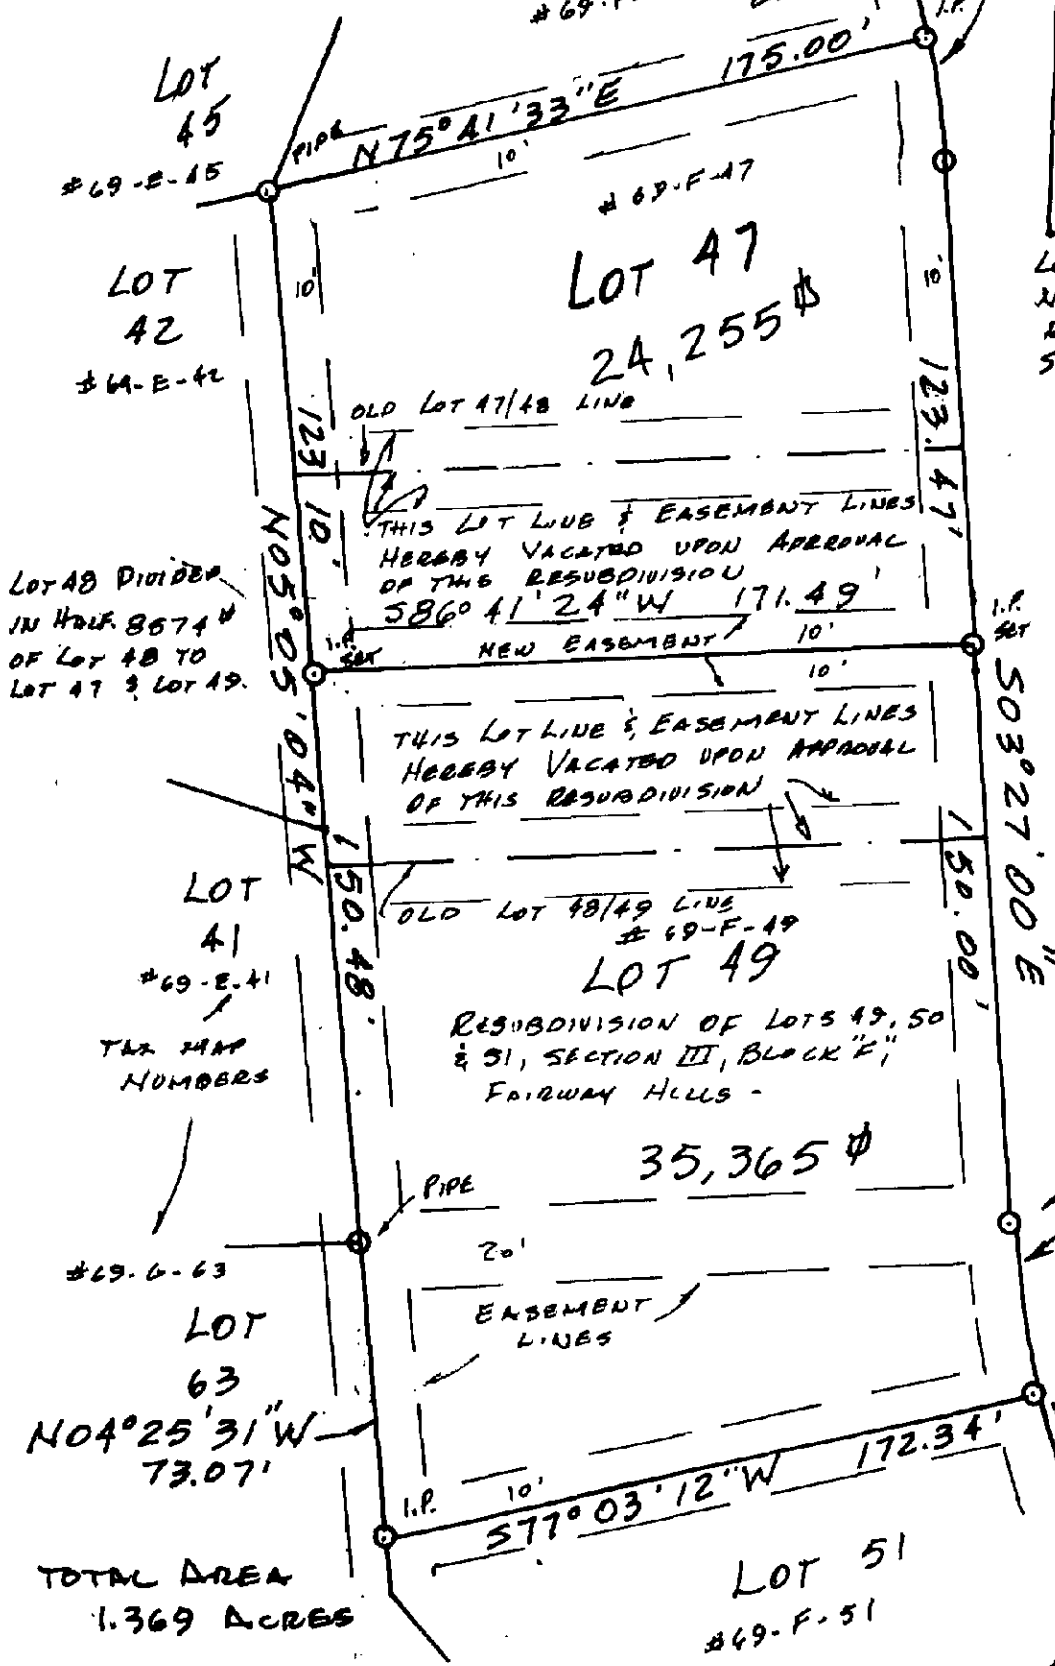 LOT
45
#69-E-45
PIPE
N75°41'33"E
175.00'
I.P.
10'
#69-F-47
LOT 47
24,255
LOT
42
#69-E-42
10'
10'
123.10'
123.47'
OLD LOT 47/48 LINE
THIS LOT LINE & EASEMENT LINES
HEREBY VACATED UPON APPROVAL
OF THIS RESUBDIVISION
S86°41'24"W 171.49'
NEW EASEMENT
10'
10'
I.P.
SET
I.P.
SET
LOT 48 DIVIDED
IN HALF. 8674
OF LOT 48 TO
LOT 47 & LOT 49.
N05°05'04"W
S03°27'00"E
THIS LOT LINE & EASEMENT LINES
HEREBY VACATED UPON APPROVAL
OF THIS RESUBDIVISION
150.48'
150.00'
OLD LOT 48/49 LINE
#69-F-49
LOT 49
LOT
41
#69-E-41
TAX MAP
NUMBERS
RESUBDIVISION OF LOTS 49, 50
& 51, SECTION III, BLOCK "F,"
FAIRWAY HILLS -
35,365
PIPE
20'
#69-G-63
LOT
63
EASEMENT
LINES
N04°25'31"W
73.07'
I.P.
10'
S77°03'12"W
172.34'
TOTAL AREA
1.369 ACRES
LOT 51
#69-F-51